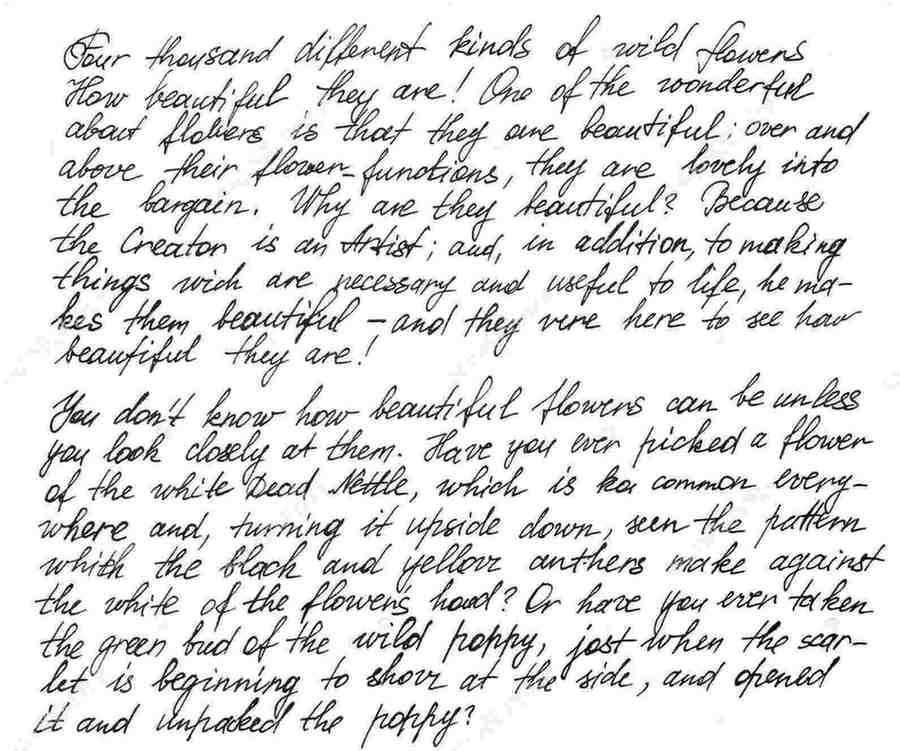 Four thousand different kinds of wild flowers
How beautiful they are! One of the wonderful
about flowers is that they are beautiful; over and
above their flower-functions, they are lovely into
the bargain. Why are they beautiful? Because
the Creator is an Artist; and, in addition, to making
things wich are necessary and useful to life, he ma-
kes them beautiful – and they were here to see how
beautiful they are!
You don't know how beautiful flowers can be unless
you look closely at them. Have you ever picked a flower
of the white Dead Nettle, which is common every-
where and, turning it upside down, seen the pattern
whith the black and yellow anthers make against
the white of the flowers hood? Or have you ever taken
the green bud of the wild poppy, jost when the scar-
let is beginning to show at the side, and opened
it and unpacked the poppy?